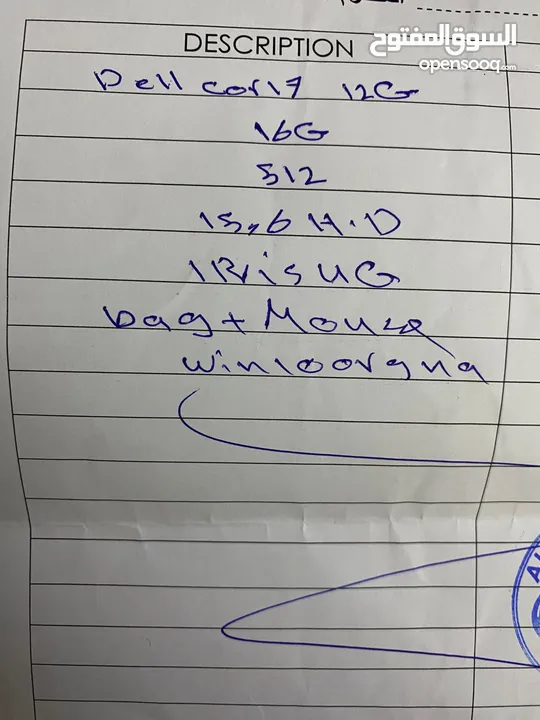 السوق المفتوح
opensooq.com
DESCRIPTION
Dell cori7 12G
16G
512
15,6 H.D
IRis UG
bag + Mouse
win10